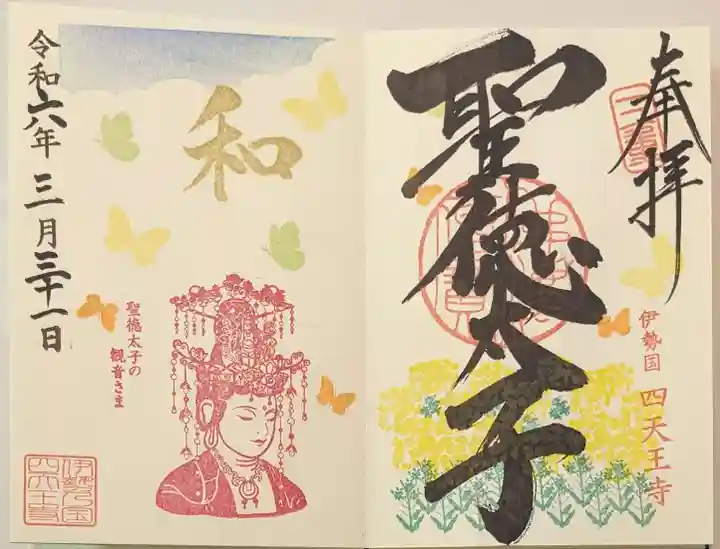 奉拝
聖徳太子
伊勢国 四天王寺
和
令和六年三月三十一日
聖徳太子の
観音さま